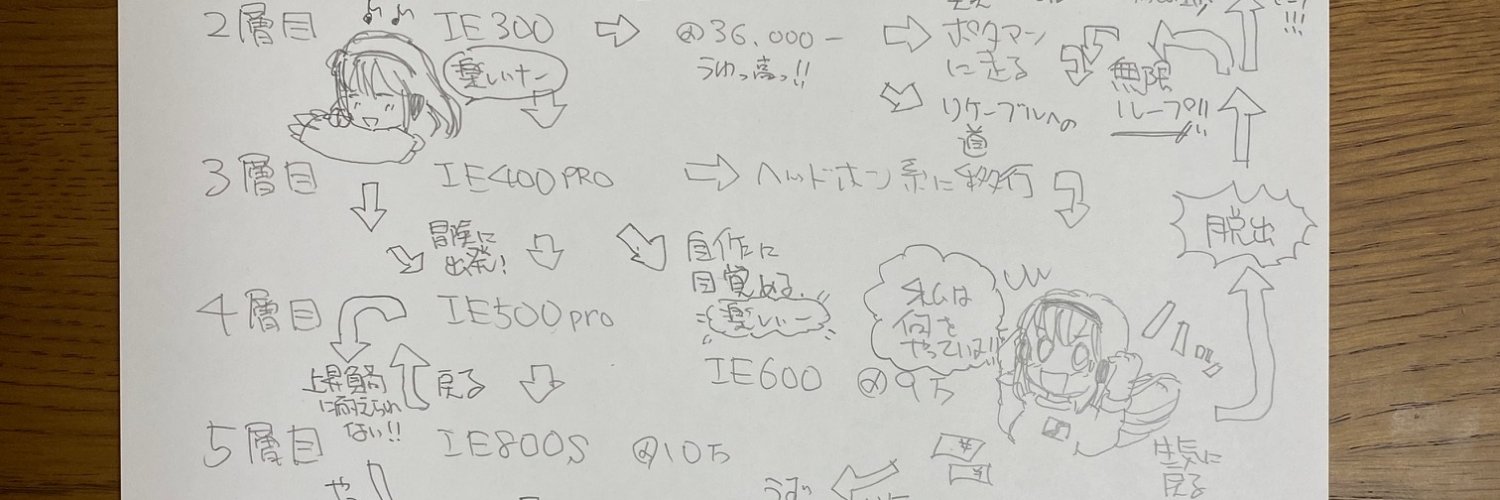 2層目 IE300 @36.000ー ポタアン
楽しいナー うわっ高っ!! に走る 無限
リケーブルへの ループ!!
道
3層目 IE400PRO ヘッドホン系に移行
冒険に
出発!
自作に
目覚める
楽しいー
脱出
4層目 IE500pro
私は
何を
やっている!!
IE600 @9万
上昇負荷
に耐えられ
ない!!
戻る
5層目 IE800S @10万
正気に
戻る